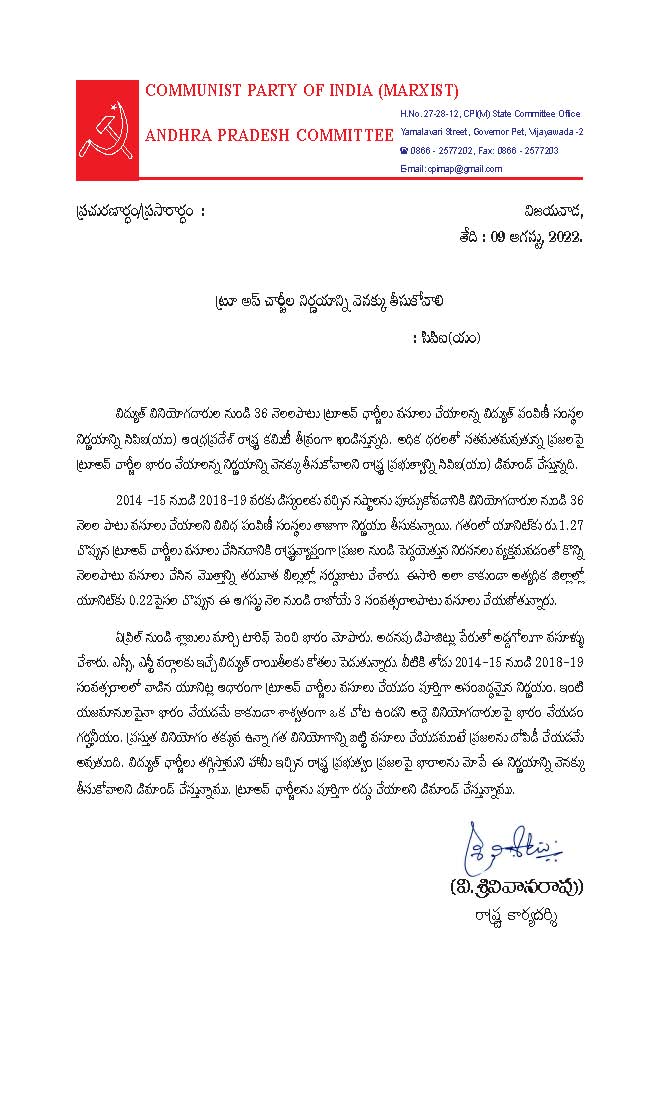 COMMUNIST PARTY OF INDIA (MARXIST)
ANDHRA PRADESH COMMITTEE
H.No. 27-28-12, CPI(M) State Committee Office
Yamalavari Street, Governor Pet, Vijayawada -2
☎ 0866 - 2577202, Fax: 0866 - 2577203
Email: cpimap@gmail.com
ప్రచురణార్థం/ప్రసారార్థం :
విజయవాడ,
తేది : 09 ఆగస్టు, 2022.
ట్రూ అప్ చార్జీల నిర్ణయాన్ని వెనక్కు తీసుకోవాలి
: సిపిఐ(యం)
విద్యుత్ వినియోగదారుల నుండి 36 నెలలపాటు ట్రూఅప్ ఛార్జీలు వసూలు చేయాలన్న విద్యుత్ పంపిణీ సంస్థల
నిర్ణయాన్ని సిపిఐ(యం) ఆంధ్రప్రదేశ్ రాష్ట్ర కమిటీ తీవ్రంగా ఖండిస్తున్నది. అధిక ధరలతో సతమతమవుతున్న ప్రజలపై
ట్రూఅప్ చార్జీల భారం వేయాలన్న నిర్ణయాన్ని వెనక్కుతీసుకోవాలని రాష్ట్ర ప్రభుత్వాన్ని సిపిఐ(యం) డిమాండ్ చేస్తున్నది.
2014 -15 నుండి 2018-19 వరకు డిస్కంలకు వచ్చిన నష్టాలను పూడ్చుకోవడానికి వినియోగదారుల నుండి 36
నెలల పాటు వసూలు చేయాలని వివిధ పంపిణీ సంస్థలు తాజాగా నిర్ణయం తీసుకున్నాయి. గతంలో యూనిట్‌కు రు.1.27
చొప్పున ట్రూఅప్ ఛార్జీలు వసూలు చేసినదానికి రాష్ట్రవ్యాప్తంగా ప్రజల నుండి పెద్దయెత్తున నిరసనలు వ్యక్తమవడంతో కొన్ని
నెలలపాటు వసూలు చేసిన మొత్తాన్ని తరువాత బిల్లుల్లో సర్దుబాటు చేశారు. ఈసారి అలా కాకుండా అత్యధిక జిల్లాల్లో
యూనిట్‌కు 0.22పైసల చొప్పున ఈ ఆగస్టు నెల నుండి రాబోయే 3 సంవత్సరాలపాటు వసూలు చేయబోతున్నారు.
ఏప్రిల్ నుండి శ్లాబులు మార్చి టారిఫ్ పెంచి భారం మోపారు. అదనపు డిపాజిట్లు పేరుతో అడ్డగోలుగా వసూళ్ళు
చేశారు. ఎస్సీ, ఎస్టీ వర్గాలకు ఇచ్చే విద్యుత్ రాయితీలకు కోతలు పెడుతున్నారు. వీటికి తోడు 2014-15 నుండి 2018-19
సంవత్సరాలలో వాడిన యూనిట్ల ఆధారంగా ట్రూఅప్ చార్జీలు వసూలు చేయడం పూర్తిగా అసంబద్ధమైన నిర్ణయం. ఇంటి
యజమానులపైనా భారం వేయడమే కాకుండా శాశ్వతంగా ఒక చోట ఉండని అద్దె వినియోగదారులపై భారం వేయడం
గర్హనీయం. ప్రస్తుత వినియోగం తక్కువ ఉన్నా గత వినియోగాన్ని బట్టి వసూలు చేయడమంటే ప్రజలను దోపిడీ చేయడమే
అవుతుంది. విద్యుత్ ఛార్జీలు తగ్గిస్తామని హామీ ఇచ్చిన రాష్ట్ర ప్రభుత్వం ప్రజలపై భారాలను మోపే ఈ నిర్ణయాన్ని వెనక్కు
తీసుకోవాలని డిమాండ్ చేస్తున్నాము. ట్రూఅప్ ఛార్జీలను పూర్తిగా రద్దు చేయాలని డిమాండ్ చేస్తున్నాము.
(వి.శ్రీనివాసరావు)
రాష్ట్ర కార్యదర్శి